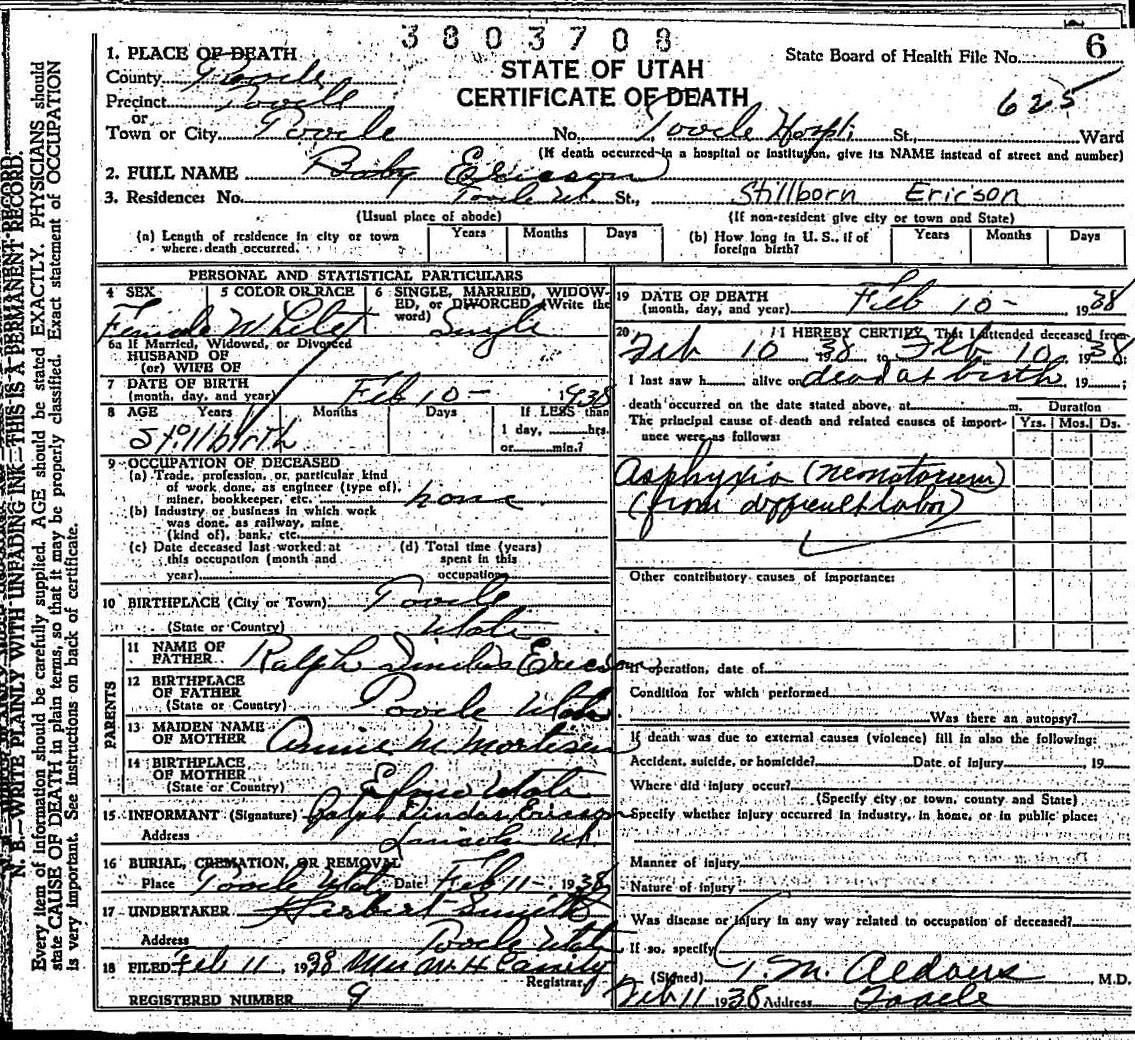 3803708
1. PLACE OF DEATH
STATE OF UTAH
CERTIFICATE OF DEATH
State Board of Health File No. 6
625
County Tooele
Precinct Tooele
or
Town or City Tooele No. Tooele Hospt. St., Ward
(If death occurred in a hospital or institution, give its NAME instead of street and number)
2. FULL NAME Baby Ericson
3. Residence: No. Tooele Ut. St., Stillborn Ericson
(Usual place of abode) (If non-resident give city or town and State)
(a) Length of residence in city or town where death occurred. Years Months Days
(b) How long in U. S., if of foreign birth? Years Months Days
PERSONAL AND STATISTICAL PARTICULARS
4 SEX Female
5 COLOR OR RACE White
6 SINGLE, MARRIED, WIDOWED, or DIVORCED (Write the word) Single
6a If Married, Widowed, or Divorced
HUSBAND OF
(or) WIFE OF
7 DATE OF BIRTH
(month, day, and year) Feb 10- 1938
8 AGE Years Months Days If LESS than
1 day, hrs.
or min.?
Stillbirth
9 OCCUPATION OF DECEASED
(a) Trade, profession, or particular kind
of work done, as engineer (type of),
miner, bookkeeper, etc. none
(b) Industry or business in which work
was done, as railway, mine
(kind of), bank, etc.
(c) Date deceased last worked at
this occupation (month and
year)
(d) Total time (years)
spent in this
occupation
10 BIRTHPLACE (City or Town) Tooele
(State or Country) Utah
PARENTS
11 NAME OF
FATHER Ralph Ericson
12 BIRTHPLACE
OF FATHER
(State or Country) Tooele Utah
13 MAIDEN NAME
OF MOTHER Annie M Mortisen
14 BIRTHPLACE
OF MOTHER
(State or Country) Utah
15 INFORMANT (Signature) Ralph Ericson
Address Lincoln Ut.
16 BURIAL, CREMATION, OR REMOVAL
Place Tooele Utah Date Feb 11- 1938
17 UNDERTAKER Herbert Smith
Address Tooele Utah
18 FILED Feb 11, 1938
Registrar
REGISTERED NUMBER 9
19 DATE OF DEATH
(month, day, and year) Feb 10- 1938
20 I HEREBY CERTIFY, That I attended deceased from
Feb 10 1938 to Feb 10, 1938;
I last saw h alive on dead at birth 19 ;
death occurred on the date stated above, at m. Duration
The principal cause of death and related causes of importance were as follows: Yrs. Mos. Ds.
Asphyxia (nematorum)
(from difficult labor)
Other contributory causes of importance:
If operation, date of
Condition for which performed
Was there an autopsy?
If death was due to external causes (violence) fill in also the following:
Accident, suicide, or homicide? Date of injury 19
Where did injury occur?
(Specify city or town, county and State)
Specify whether injury occurred in industry, in home, or in public place:
Manner of injury
Nature of injury
Was disease or injury in any way related to occupation of deceased?
If so, specify
(Signed) T. M. Aldous M.D.
Feb 11 1938 Address Tooele
N. B.—WRITE PLAINLY WITH UNFADING INK—THIS IS A PERMANENT RECORD.
Every item of information should be carefully supplied. AGE should be stated EXACTLY. PHYSICIANS should
state CAUSE OF DEATH in plain terms, so that it may be properly classified. Exact statement of OCCUPATION
is very important. See instructions on back of certificate.